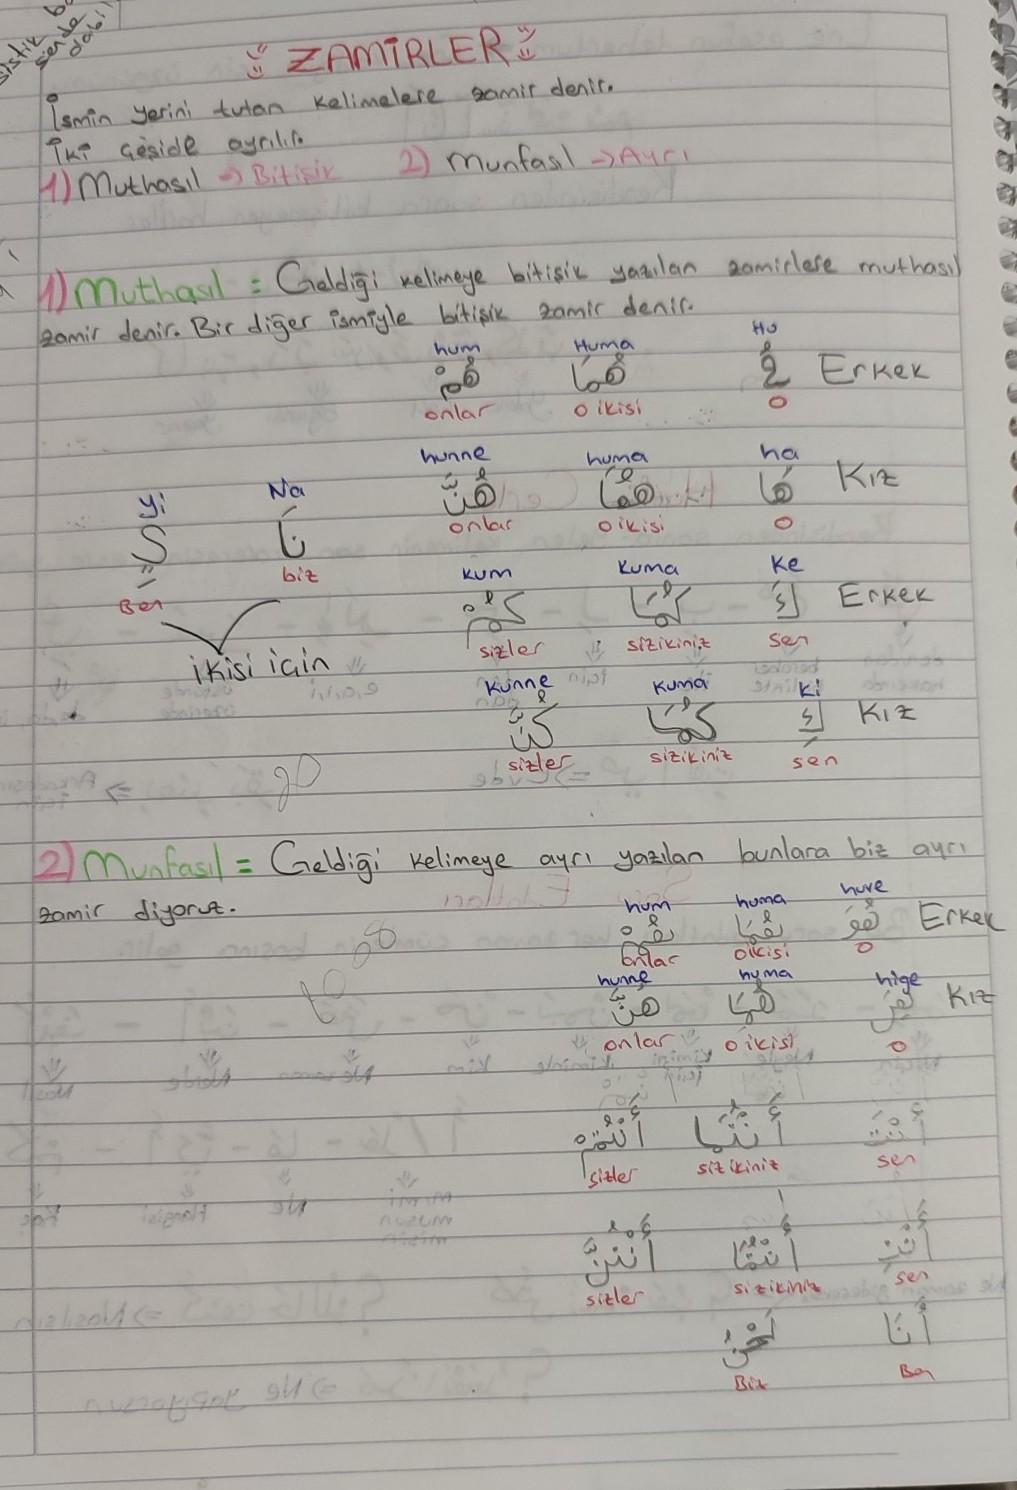 ZAMİRLER
İsmin yerini tutan kelimelere zamir denir.
İki çeşide ayrılır.
1) Muthasıl → Bitişik 2) Munfasıl → Ayrı
1) Muthasıl = Geldiği kelimeye bitişik yazılan zamirlere muthasıl
zamir denir. Bir diğer ismiyle bitişik zamir denir.
hum Huma Hu
هُمْ هُمَا هُ Erkek
onlar o ikisi o
hunne huma ha
هُنَّ هُمَا هَا Kız
onlar o ikisi o
yi Na
ي نَا
Ben biz
ikisi için
kum kuma ke
كُمْ كُمَا كَ Erkek
sizler sizikiniz sen
kunne kuma ki
كُنَّ كُمَا كِ Kız
sizler sizikiniz sen
2) Munfasıl = Geldiği kelimeye ayrı yazılan bunlara biz ayrı
zamir diyoruz.
hum huma huve
هُمْ هُمَا هُوَ Erkek
onlar oikisi o
hunne huma hiye
هُنَّ هُمَا هِيَ Kız
onlar o ikisi o
أَنْتُمْ أَنْتُمَا أَنْتَ
sizler sizikiniz sen
أَنْتُنَّ أَنْتُمَا أَنْتِ
sizler sizikiniz sen
نَحْنُ أَنَا
Biz Ben